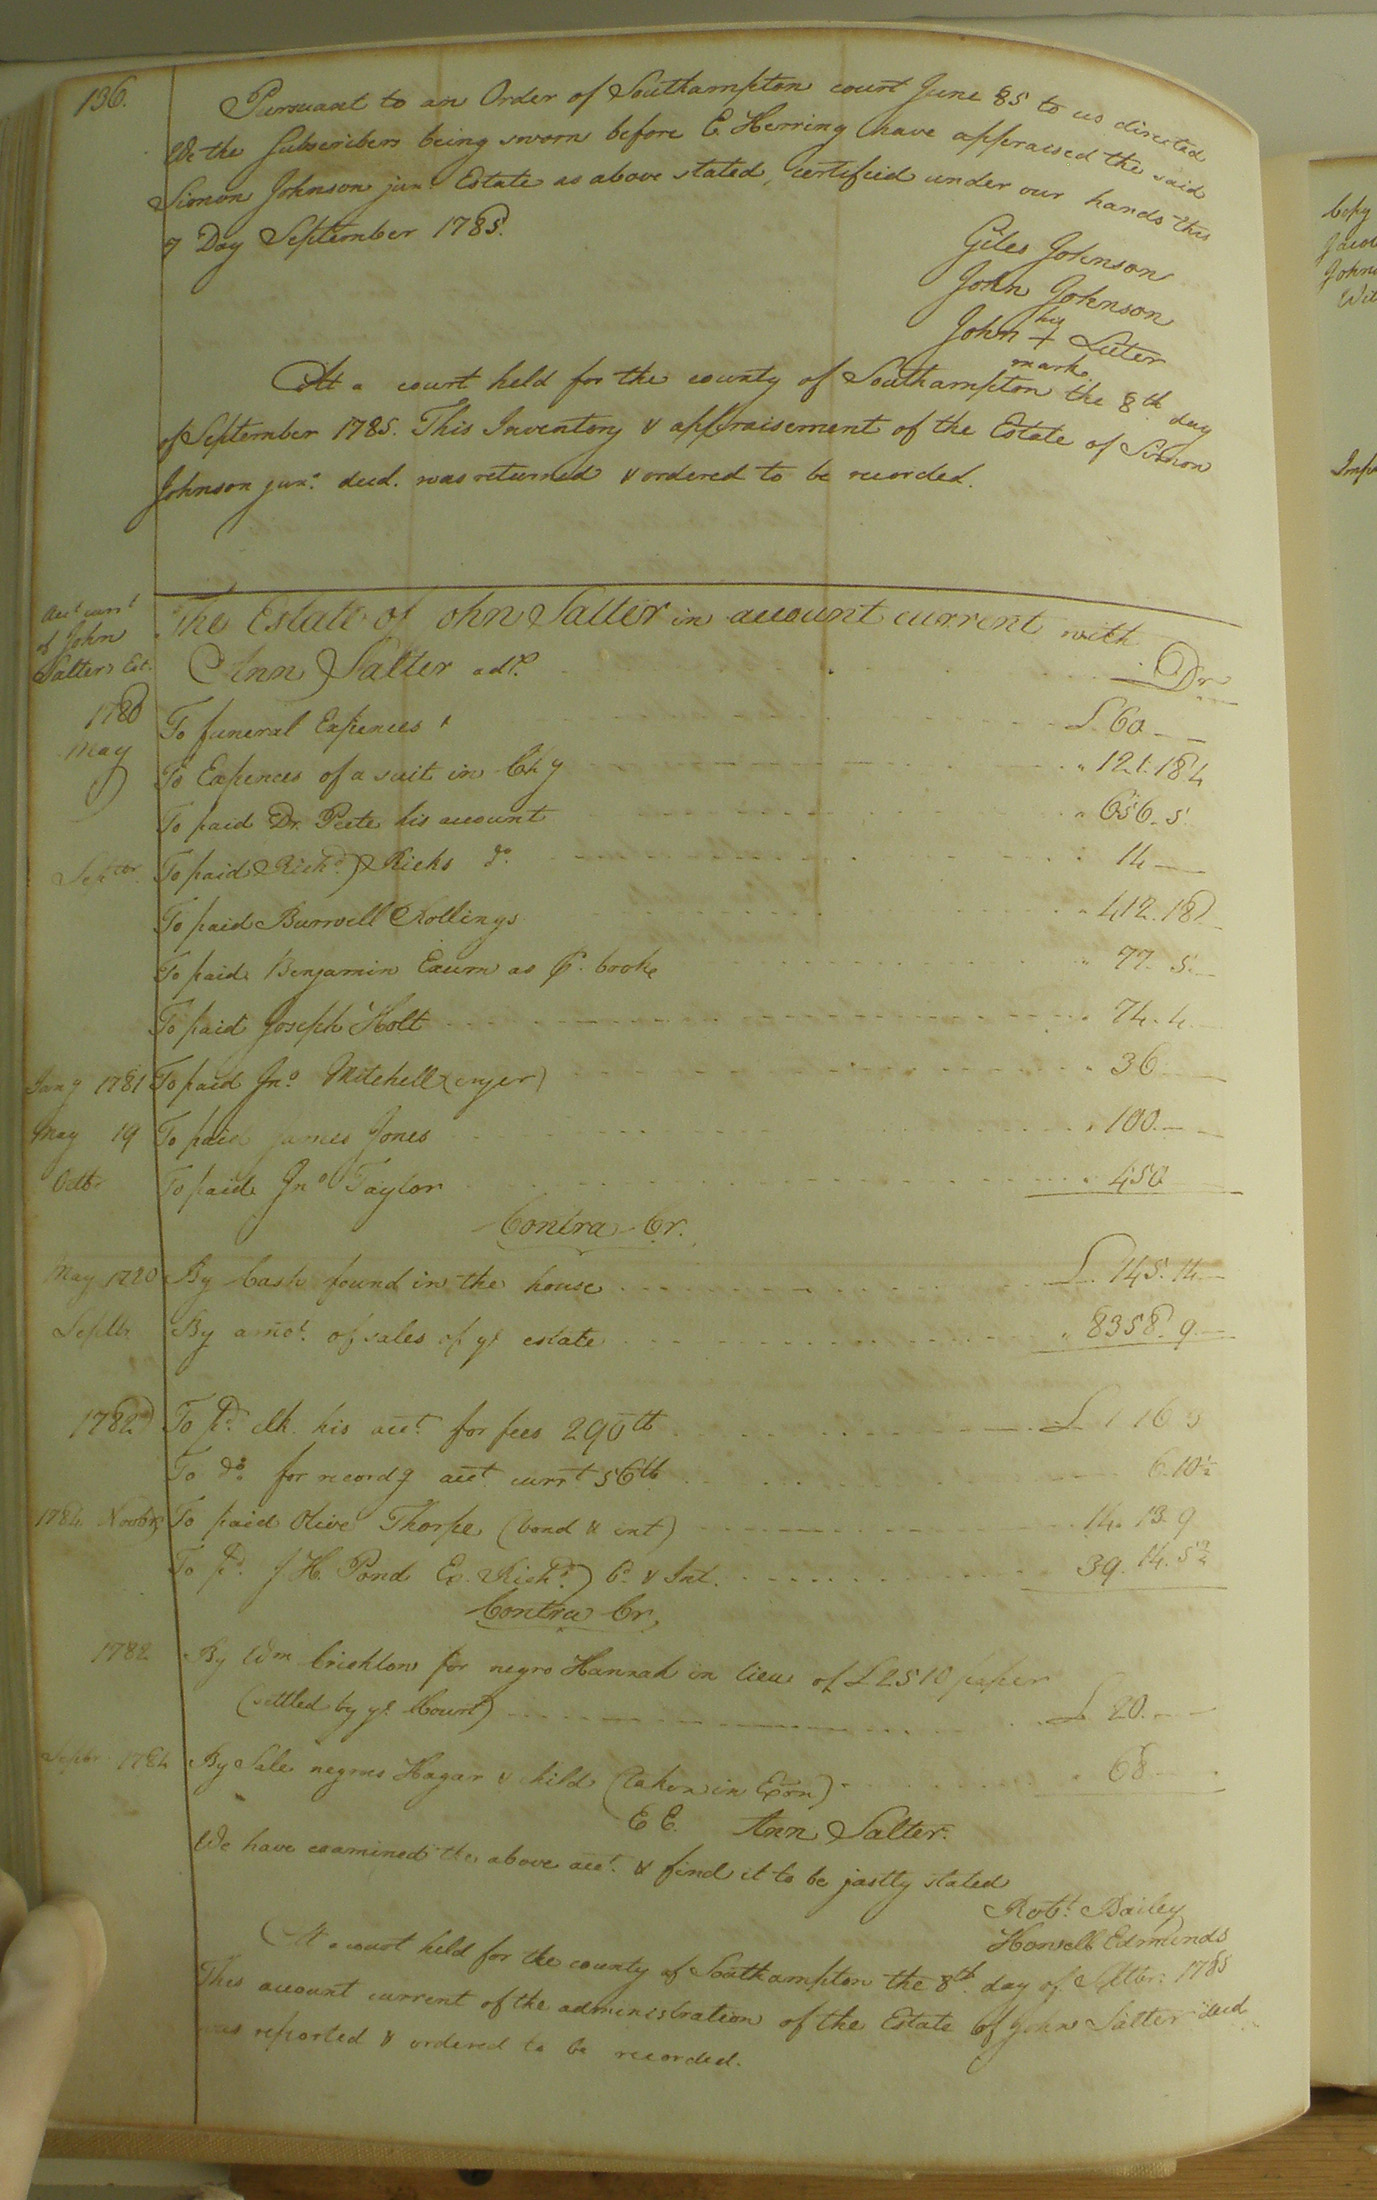 136.
Pursuant to an Order of Southampton court June 85 to us directed
We the Subscribers being sworn before E. Herring have appraised the said
Simon Johnson jun. Estate as above stated, certified under our hands this
7 Day September 1785.
Giles Johnson
John Johnson
his
John + Luter
mark
At a court held for the county of Southampton the 8th day
of September 1785. This Inventory & appraisement of the Estate of Simon
Johnson junr. decd. was returned & ordered to be recorded.
Acct. currt
of John
Salters Est.
The Estate of John Salter in account current with
Ann Salter adx. Dr
1780
May
To funeral Expences £ 60
To Expences of a suit in Ch'y " 121. 18 4
To paid Dr. Peete his account " 656. 5
Septbr. To paid Richd. Ricks do. 14
To paid Burwell Rollings " 412. 18
To paid Benjamin Exum as P. broke " 77. 5
To paid Joseph Holt " 74. 4
Jany 1781 To paid Jno. Mitchell 36
May 19 To paid James Jones " 100
Octbr To paid Jno. Taylor " 450
Contra Cr.
May 1780 By Cash found in the house £ 145. 14
Septbr By amot. of sales of ye estate " 8358. 9
1782 To pd. clk. his acct. for fees 290 tb £ 1 16 3
To do. for record'g acct. currt 56 tb 6. 10½
1784 Novbr To paid Olive Thorpe (bond & int) 14. 13. 9
To pd. J H. Pond Ex. Richd. Co. & Int. 39. 14. 5¾
Contra Cr.
1782 By Wm. Crichlow for negro Hannah in lieu of £2510 paper
(settled by ye Court) £ 20.
Septbr 1784 By Sale negroes Hagar & child (taken in Exon) " 68
E E. Ann Salter.
We have examined the above acct. & find it to be justly stated
Robt. Bailey
Howell Edmunds
At a court held for the county of Southampton the 8th day of Septbr: 1785
This account current of the administration of the Estate of John Salter decd
was reported & ordered to be recorded.